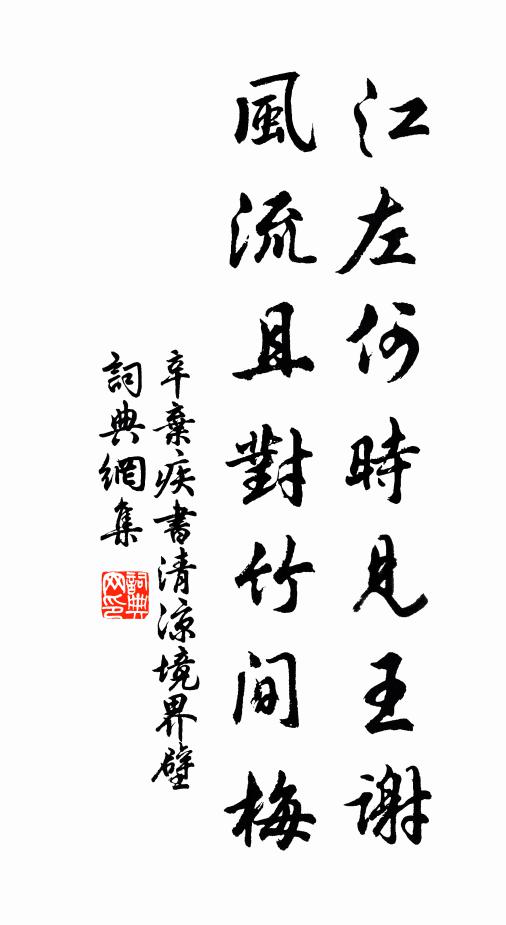 江左何時見王谢
風流且對竹間梅
辛棄疾書清涼境界壁
詞典網集
詞典网印